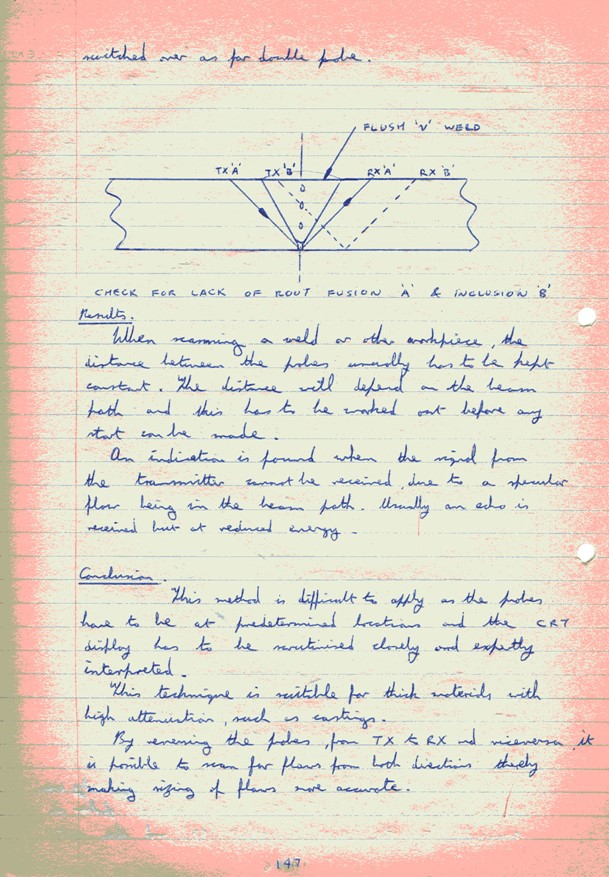 switched over as for double probe.
FLUSH 'V' WELD
TX 'A' TX 'B' RX 'A' RX 'B'
CHECK FOR LACK OF ROOT FUSION 'A' & INCLUSION 'B'
Results.
When scanning a weld or other workpiece, the
distance between the probes usually has to be kept
constant. The distance will depend on the beam
path and this has to be worked out before any
start can be made.
An indication is found when the signal from
the transmitter cannot be received, due to a specular
flaw being in the beam path. Usually an echo is
received but at reduced energy.
Conclusion.
This method is difficult to apply as the probes
have to be at predetermined locations and the CRT
display has to be scrutinised closely and expertly
interpreted.
This technique is suitable for thick materials with
high attenuation, such as castings.
By reversing the probes, from TX to RX and viceversa, it
is possible to scan for flaws from both directions thereby
making sizing of flaws more accurate.
147